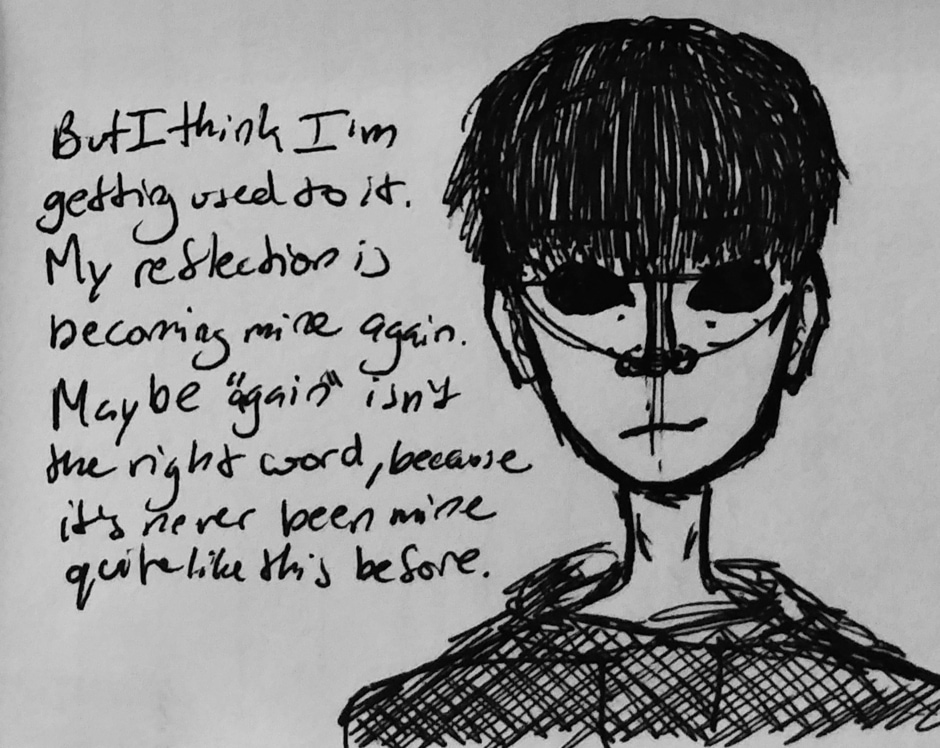 But I think I'm
getting used to it.
My reflection is
becoming mine again.
Maybe "again" isn't
the right word, because
it's never been mine
quite like this before.